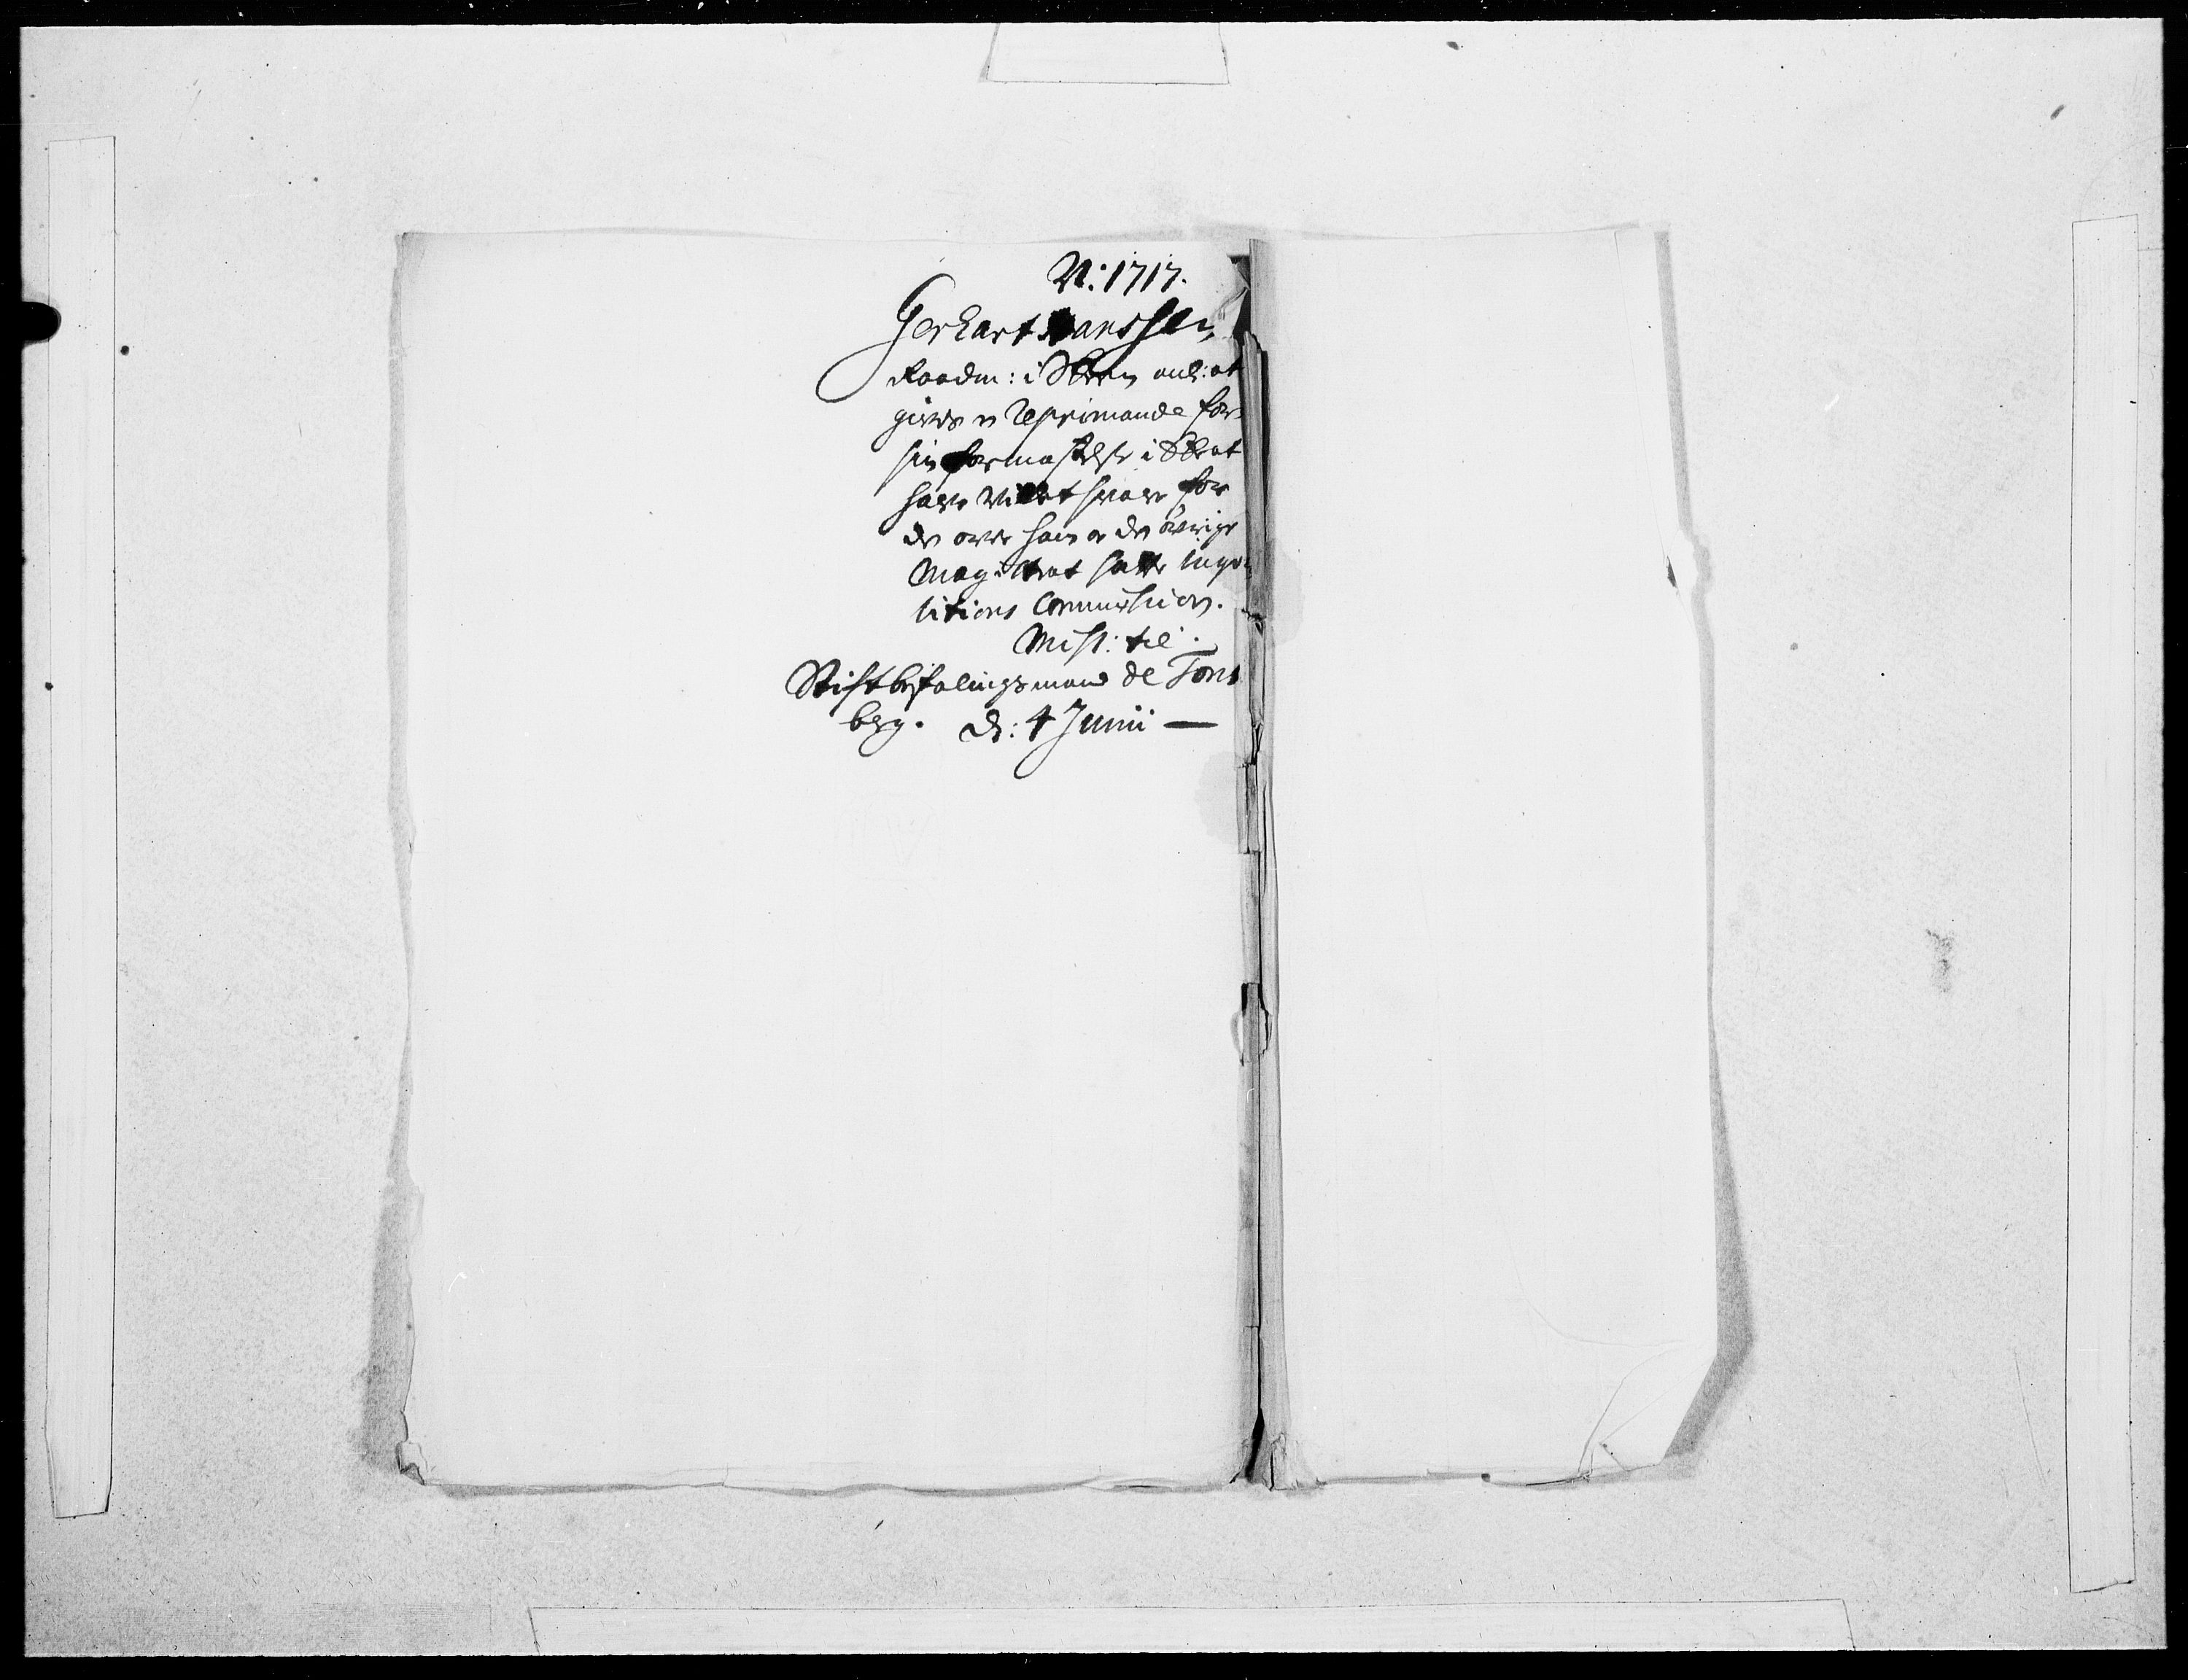 A: 1717.
Gerhart Hanssen
Raadm: i Skeen anl: at
gives en Reprimande for
sin formastelse i Ske at
have villet svare for
den over ham og den övrige
Magistrat satte inqvi
sitions Commission.
Miss: til
Stiftbefalingsmand de Tons
berg. d: 4 Junii —